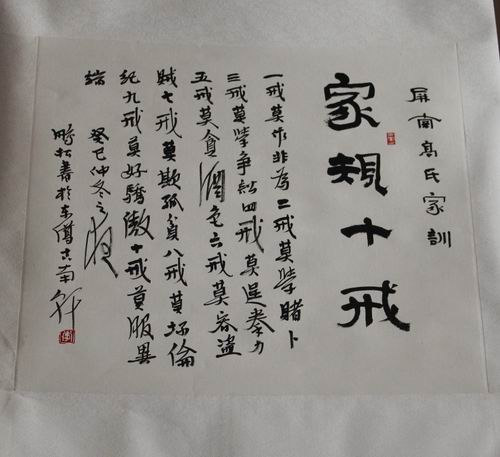 屏南髙氏家訓
家規十戒
一戒莫作非為二戒莫學賭卜
三戒莫學爭訟四戒莫逞拳力
五戒莫貪酒色六戒莫容盜
賊七戒莫欺孤貧八戒莫坏倫
紀九戒莫好驕傲十戒莫服異
端
癸巳仲冬之夜
松書於东僑南軒